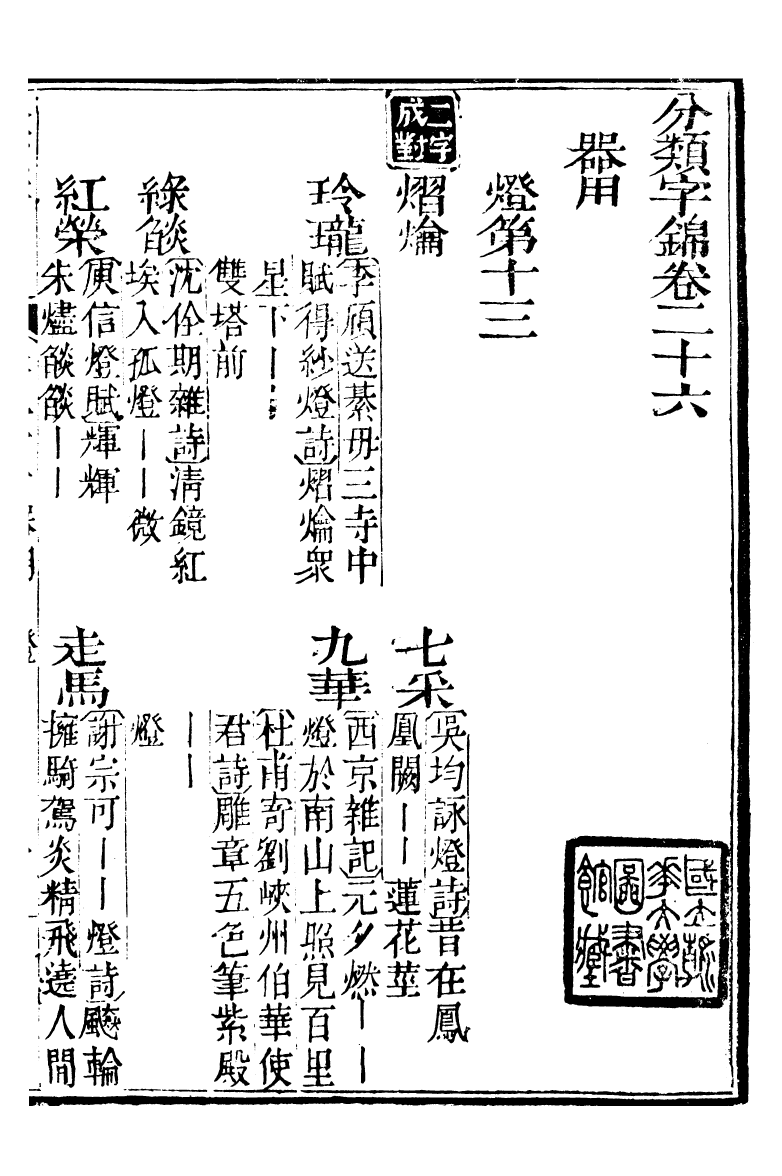 分類字錦卷二十六
器用
燈第十三
二字
成對
熠爚
七采
吳均詠燈詩昔在鳳
凰闕丨丨蓮花莖
玲瓏
李頎送綦毋三寺中
賦得紗燈詩熠爚衆
星下丨丨
雙塔前
九華
西京雜記元夕燃丨丨
燈於南山上照見百里
杜甫寄劉峽州伯華使
君詩雕章五色筆紫殿
丨丨
燈
綠燄
沈佺期雜詩清鏡紅
埃入孤燈丨丨微
紅榮
庾信燈賦輝輝
朱燼燄燄丨丨
走馬
謝宗可丨丨燈詩飈輪
擁騎駕炎精飛遶人間
國立
華大學
圖書
館藏